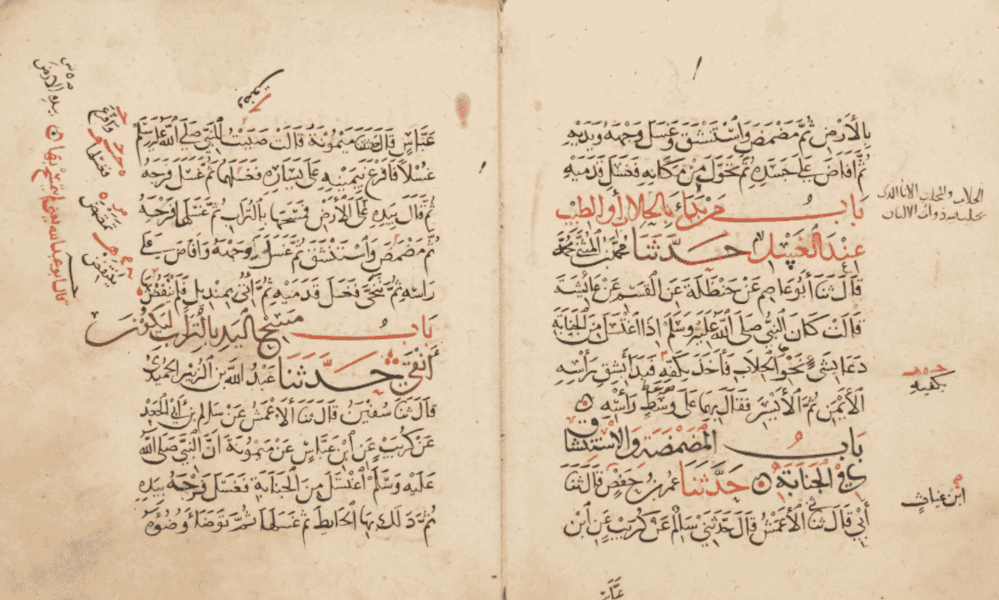 بالأرض ثم مضمض واستنشق وغسل وجهه ويديه
ثم أفاض على جسده ثم تحول من مكانه فغسل قدميه
باب من بدأ بالحلاب أو الطيب
عند الغسل حدثنا محمد بن المثنى
قال ثنا أبو عاصم عن حنظلة عن القسم عن عائشة
قالت كان النبي صلى الله عليه وسلم إذا اغتسل من الجنابة
دعا بشيء نحو الحلاب فأخذ بكفه فبدأ بشق رأسه
الأيمن ثم الأيسر فقال بهما على وسط رأسه
باب المضمضة والاستنشاق
في الجنابة حدثنا عمر بن حفص قال ثنا
أبي قال ثنا الأعمش قال حدثني سالم عن كريب عن ابن
الحلاب والمحلب الاناء الذى
يحلب فيه ذوات الالبان
بكفيه
ابن غياث
عباس قال ميمونة قالت صببت للنبي صلى الله عليه وسلم
غسلا فأفرغ بيمينه على يساره فغسلها ثم غسل فرجه
ثم قال بيده على الأرض فمسحها بالتراب ثم غسلها
ثم مضمض واستنشق ثم غسل وجهه وأفاض على
رأسه ثم تنحى فغسل قدميه ثم أتى بمنديل فلم ينفض
باب مسح اليد بالتراب لتكون
أنقى حدثنا عبد الله بن الزبير الحميدي
قال ثنا سفين قال ثنا الأعمش عن سالم بن أبي الجعد
عن كريب عن ابن عباس عن ميمونة أن النبي صلى الله
عليه وسلم اغتسل من الجنابة فغسل فرجه بيده
ثم دلك بها الحائط ثم غسلها ثم توضأ وضوءه
بيده الارض
وافرغ
فغسل
تمضمض
ينتفض
قال ابو عبد الله يعني لم يتمسح بها